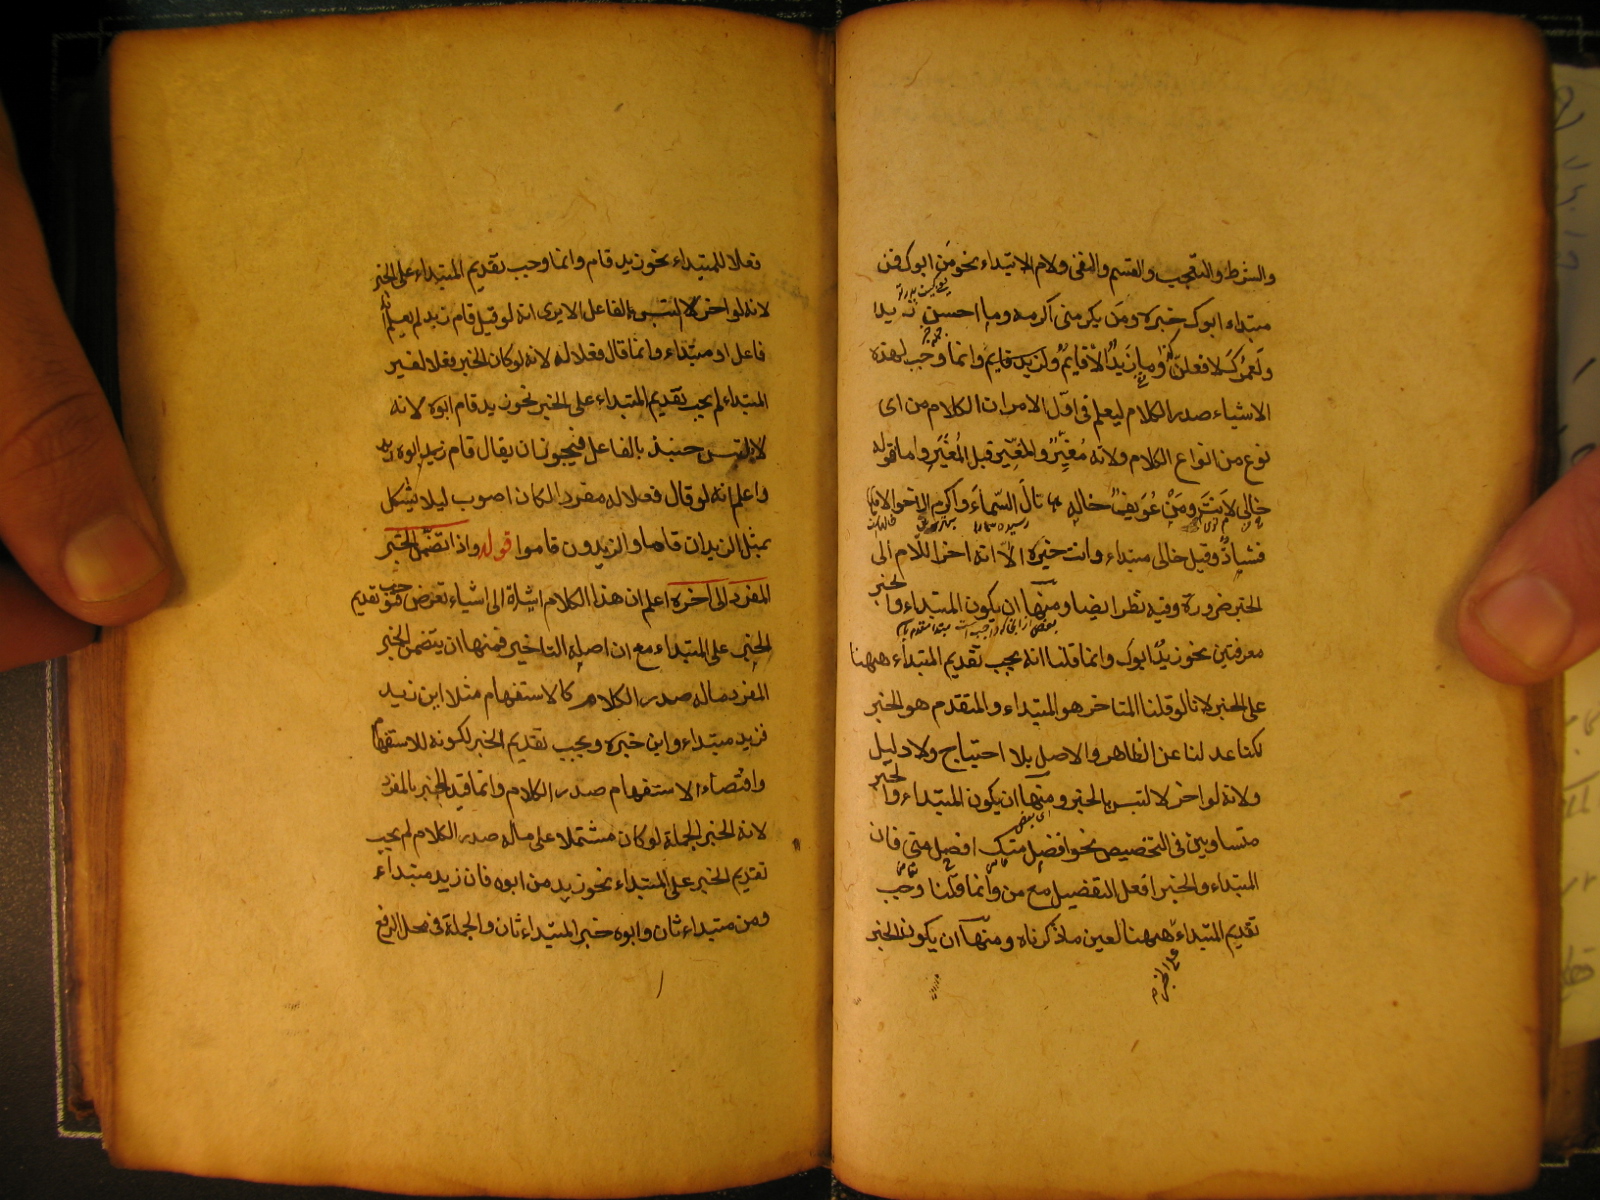 والشرط والتعجب والقسم والنفى ولام الابتداء نحو مَن ابوك فمن
مبتداء ابوك خبره ومَن يكرمنى اكرمه وما احسن زيدا
ولَعَمرُكَ لافعلنّ كذا وما زيدٌ الا قايمٌ ولزيد قايم وانما وجب لهذه
الاشياء صدر الكلام ليعلم فى اوّل الامر ان الكلام من اى
نوع من انواع الكلام ولانه مُغيِّرٌ والمغيِّر قبل المُغيَّر واما قوله
خالى لَانتَ ومَنْ عُوَيفٌ خاله نالَ السّماءَ واكرم الاخوالا
فشاذٌ وقيل خالى مبتداء وانت خبره الّا انه اخر اللّام الى
الخبر ضرورة وفيه نظر ايضا ومنها ان يكون المبتداء والخبر
معرفتين نحو زيدٌ ابوك وانما قلنا انه يجب تقديم المبتداء ههنا
على الخبر لانا لو قلنا المتاخر هو المبتداء والمتقدم هو الخبر
لكنا عدلنا عن الظاهر والاصل بلا احتياج ولا دليل
ولانه لو اخر لالتبس بالخبر ومنها ان يكون المبتداء والخبر
متساويين فى التخصيص نحو افضل منك افضل منى فان
المبتداء والخبر افعل التفضيل مع من وانما قلنا وجب
تقديم المبتداء ههنا لعين ما ذكرناه ومنها ان يكون الخبر
على الخبر
فعلا للمبتداء نحو زيد قام وانما وجب تقديم المبتداء على الخبر
لانه لو اخر لالتبس بالفاعل الا يرى انه لو قيل قام زيد لم يعلم
فاعل او مبتداء وانما قال فعلا له لانه لو كان الخبر فعلا لغير
المبتداء لم يجب تقديم المبتداء على الخبر نحو زيد قام ابوه لانه
لا يلتبس حينئذ بالفاعل فيجوز ان يقال قام ابوه زيد
واعلم انه لو قال فعلا له مفردا لكان اصوب ليلا يشكل
بمثل الزيدان قاما والزيدون قاموا قوله واذا تضمن الخبر
المفرد الى آخره اعلم ان هذا الكلام اشارة الى اشياء تعرض فتوجب تقديم
الخبر على المبتداء مع ان اصله التاخير فمنها ان يتضمن الخبر
المفرد ماله صدر الكلام كالاستفهام مثلا اين زيد
فزيد مبتداء واين خبره ويجب تقديم الخبر لكونه للاستفهام
واقتضاء الاستفهام صدر الكلام وانما قيد الخبر بالمفرد
لانه الخبر الجملة لو كان مشتملا على ماله صدر الكلام لم يجب
تقديم الخبر على المبتداء نحو زيد من ابوه فان زيد مبتداء
ومن مبتداء ثان وابوه خبر المبتداء ثان والجملة فى محل الرفع